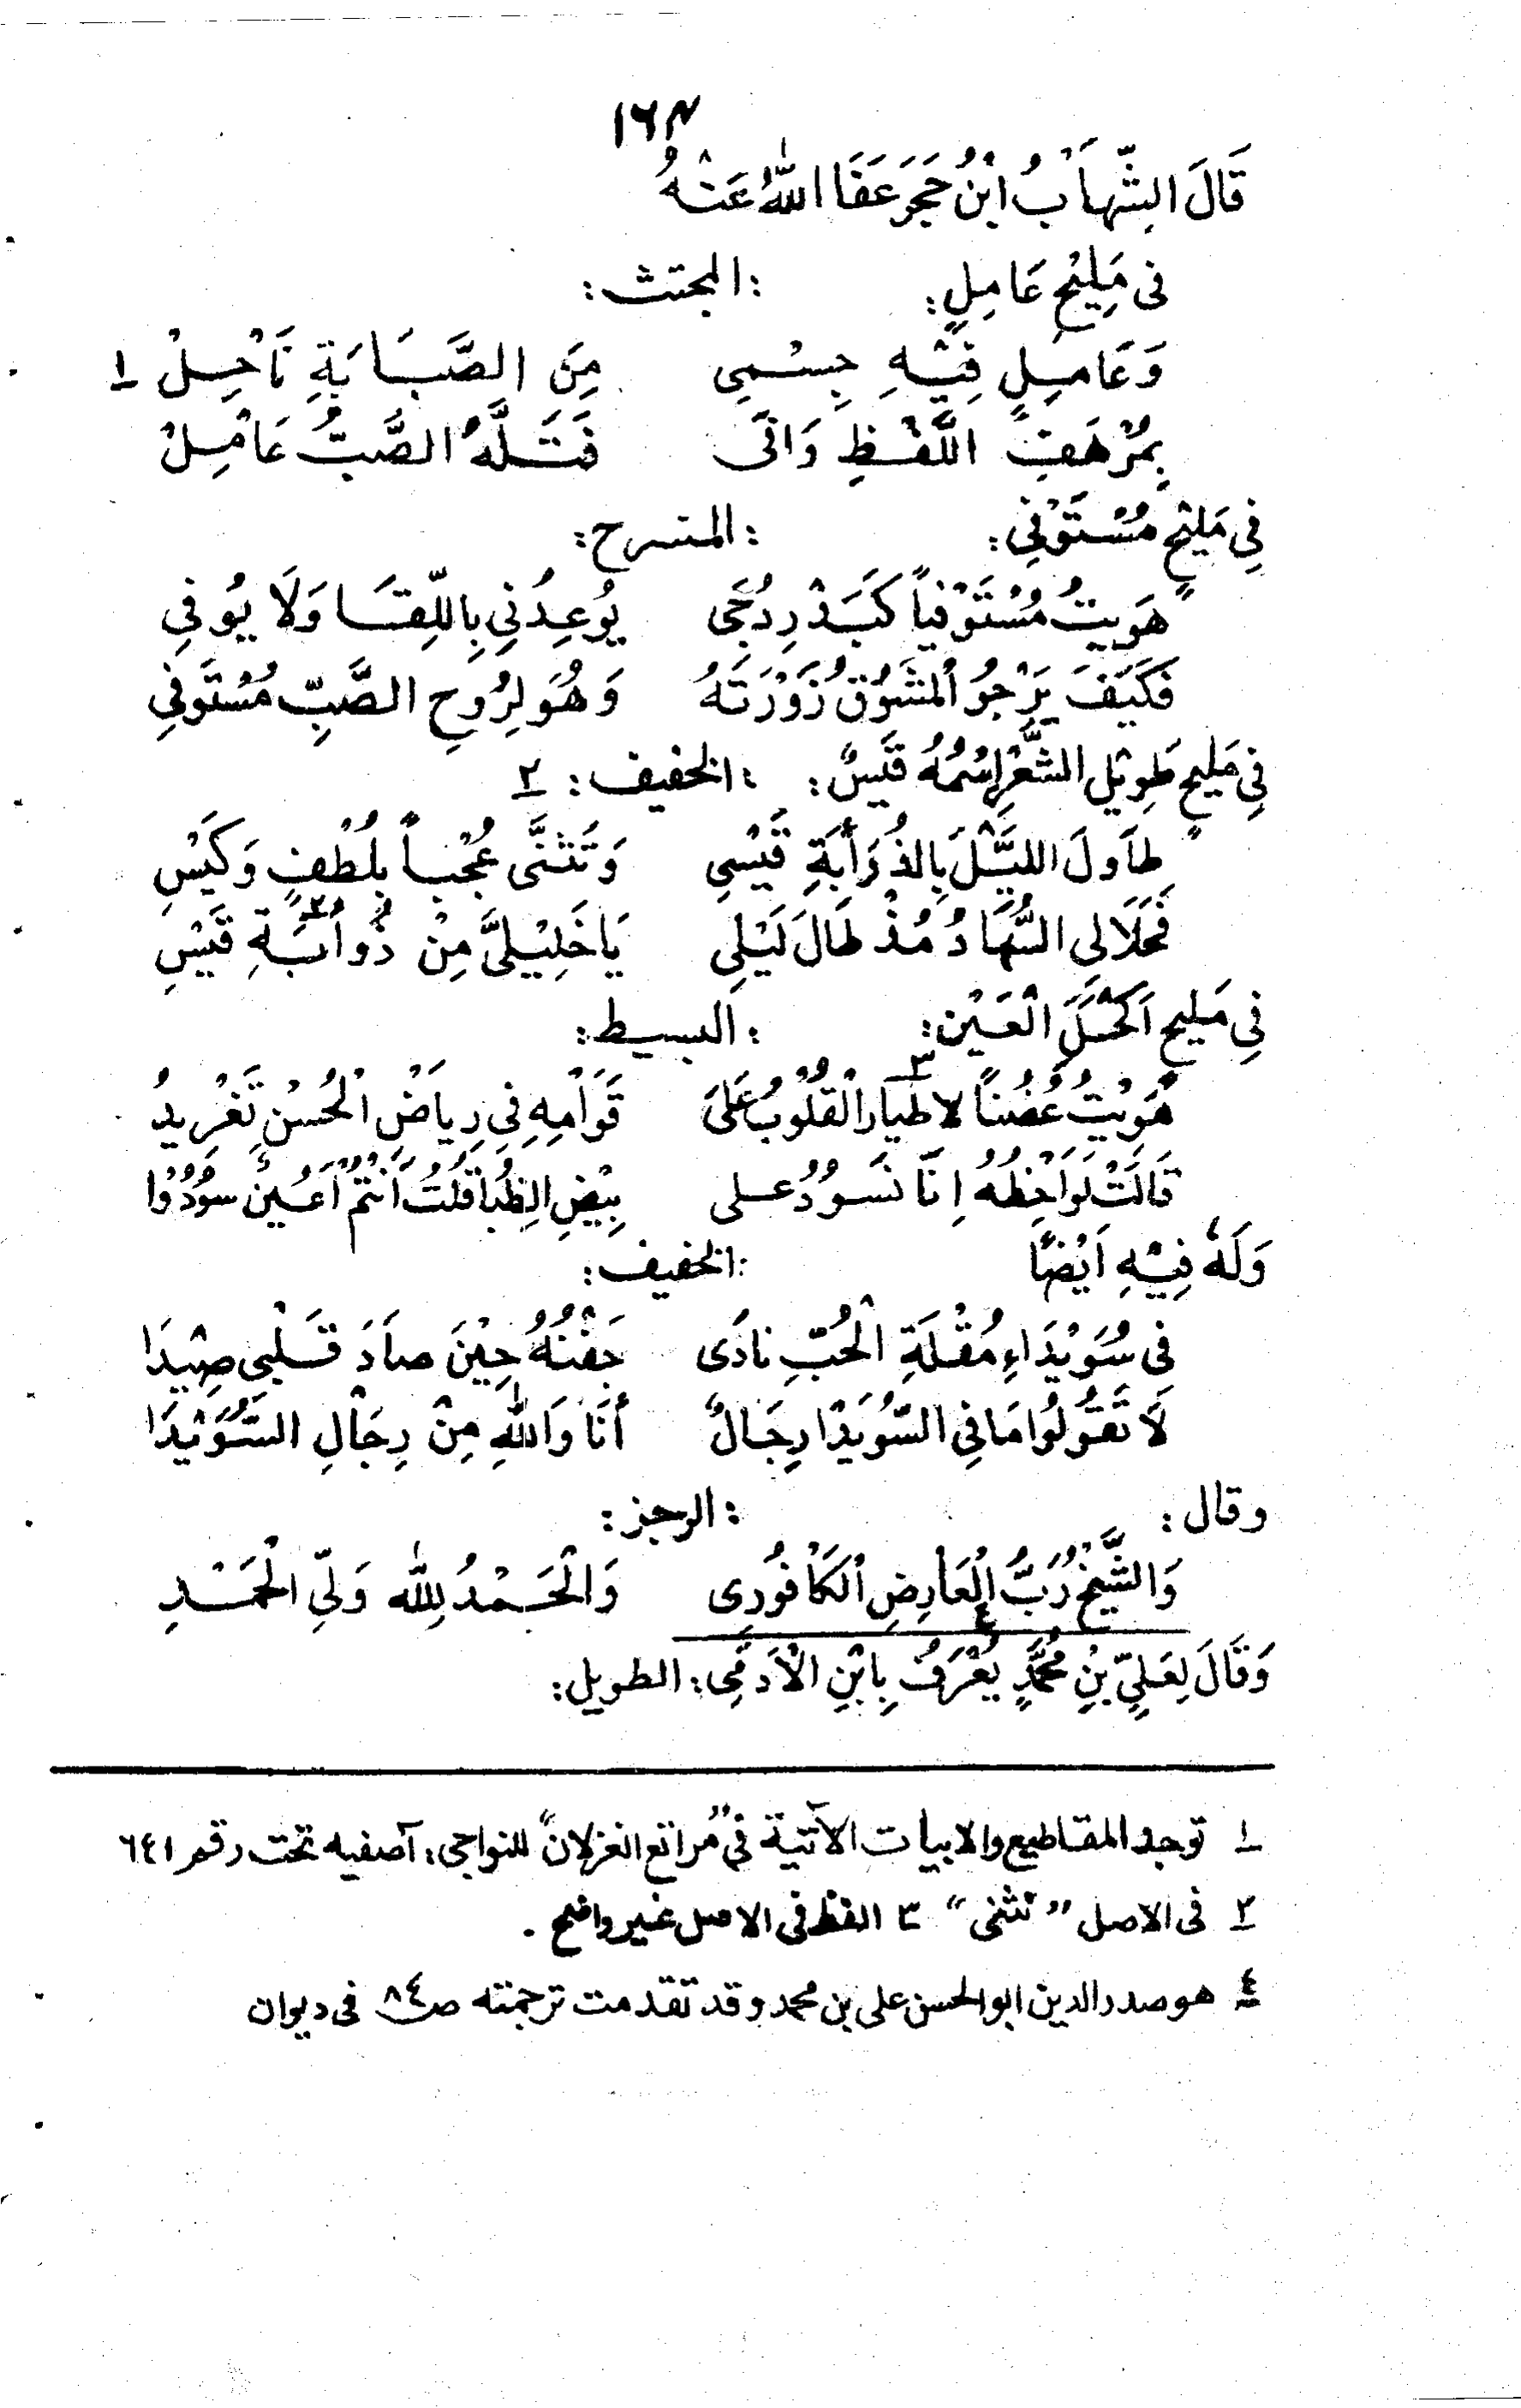 ١٦٣
قَالَ الشِّهَابُ ابْنُ حَجَرَ عَفَا اللّٰهُ عَنْهُ
فی مَلِيْحٍ عَامِلٍ: :المجتث:
وَعَامِلٍ فِيْهِ جِسْمِی مِنَ الصَّبَابَةِ نَاحِلْ ١
بِمُرْهَفِ اللَّفْظِ وَافَی قَتَلَهُ الصَّبُّ عَامِلْ
فِی مَلِيْحٍ مُسْتَوْفِی: :المنسرح:
هَوِيتُ مُسْتَوْفِياً كَبَدْرِ دُجَی يُوعِدُنِی بِاللِّقَا وَلَا يُوفِی
فَكَيَفَ يَرْجُو الْمَشُوْقُ زَوْرَتَهُ وَهُوَ لِرُوحِ الصَّبِّ مُسْتَوفِی
فِی مَلِيحٍ طَوِيْلِ الشَّعْرِ اِسْمُهُ قَيْسٌ: :الخفيف: ٢
طَاوَلَ اللَّيْلَ بِالذُؤَابَةِ قَيْسِی وَتَثَنَّى عُجْباً بِلُطْفٍ وَكَيْسِ
فَحَلَالِی السُّهَادُ مُذْ طَالَ لَيْلِی يَاخَلِيْلَیَّ مِنْ ذُوأَبَةِ قَيْسِ
فِی مَلِيحٍ اَكْحَلَ الْعَيْن: :البسيط:
هَوِيْتُ غُصْناً لاطيار الْقُلُوْبُ عَلیَ ٣ قَوَامِهِ فِی رِيَاضِ الْحُسْنِ تَغْرِيدُ
قَالَتْ لَوَاحِظُهُ اِنَّا نَسُوْدُ علی بِيْضِ الظُّبَا قُلْتُ اَنْتُمْ اَعْيُنٌ سُوْدُوْا
وَلَهُ فِيْهِ اَيْضًا :الخفيف:
فی سُوَيْدَاءِ مُقْلَةِ الْحُبِّ نَادَی جَفْنُهُ حِيْنَ صاَدَ قَلْبی صِيْدَا
لَا تَقُوْلُوْا مَا فِی السُّوَيْدَا رِجَالٌ أنَا وَاللّٰهِ مِنْ رِجَالِ السُّوَيْدَا
وقال: :الرجز:
وَالشَّيْخُ رَبُّ الْعَارِضِ الْكَافُوْرِی وَالْحَمْدُ لِلّٰه وَلِیِّ الْحَمْدِ
وَقَالَ لِعَلِیِّ بْنِ مُحَمَّدٍ ٤ يُعْرَفُ بِابْنِ الْاَدَمِی: الطويل:
١ توجد المقاطيع والابيات الآتية فی "مراتع الغزلان" للنواجی: آصفيه تحت رقم ٦٤١
٢ فی الاصل "تثنی" ٣ الفظ فی الاصل غير واضح .
٤ هو صدر الدين ابو الحسن علی بن محمد وقد تقدمت ترجمته ص ٨٤ فی ديوان